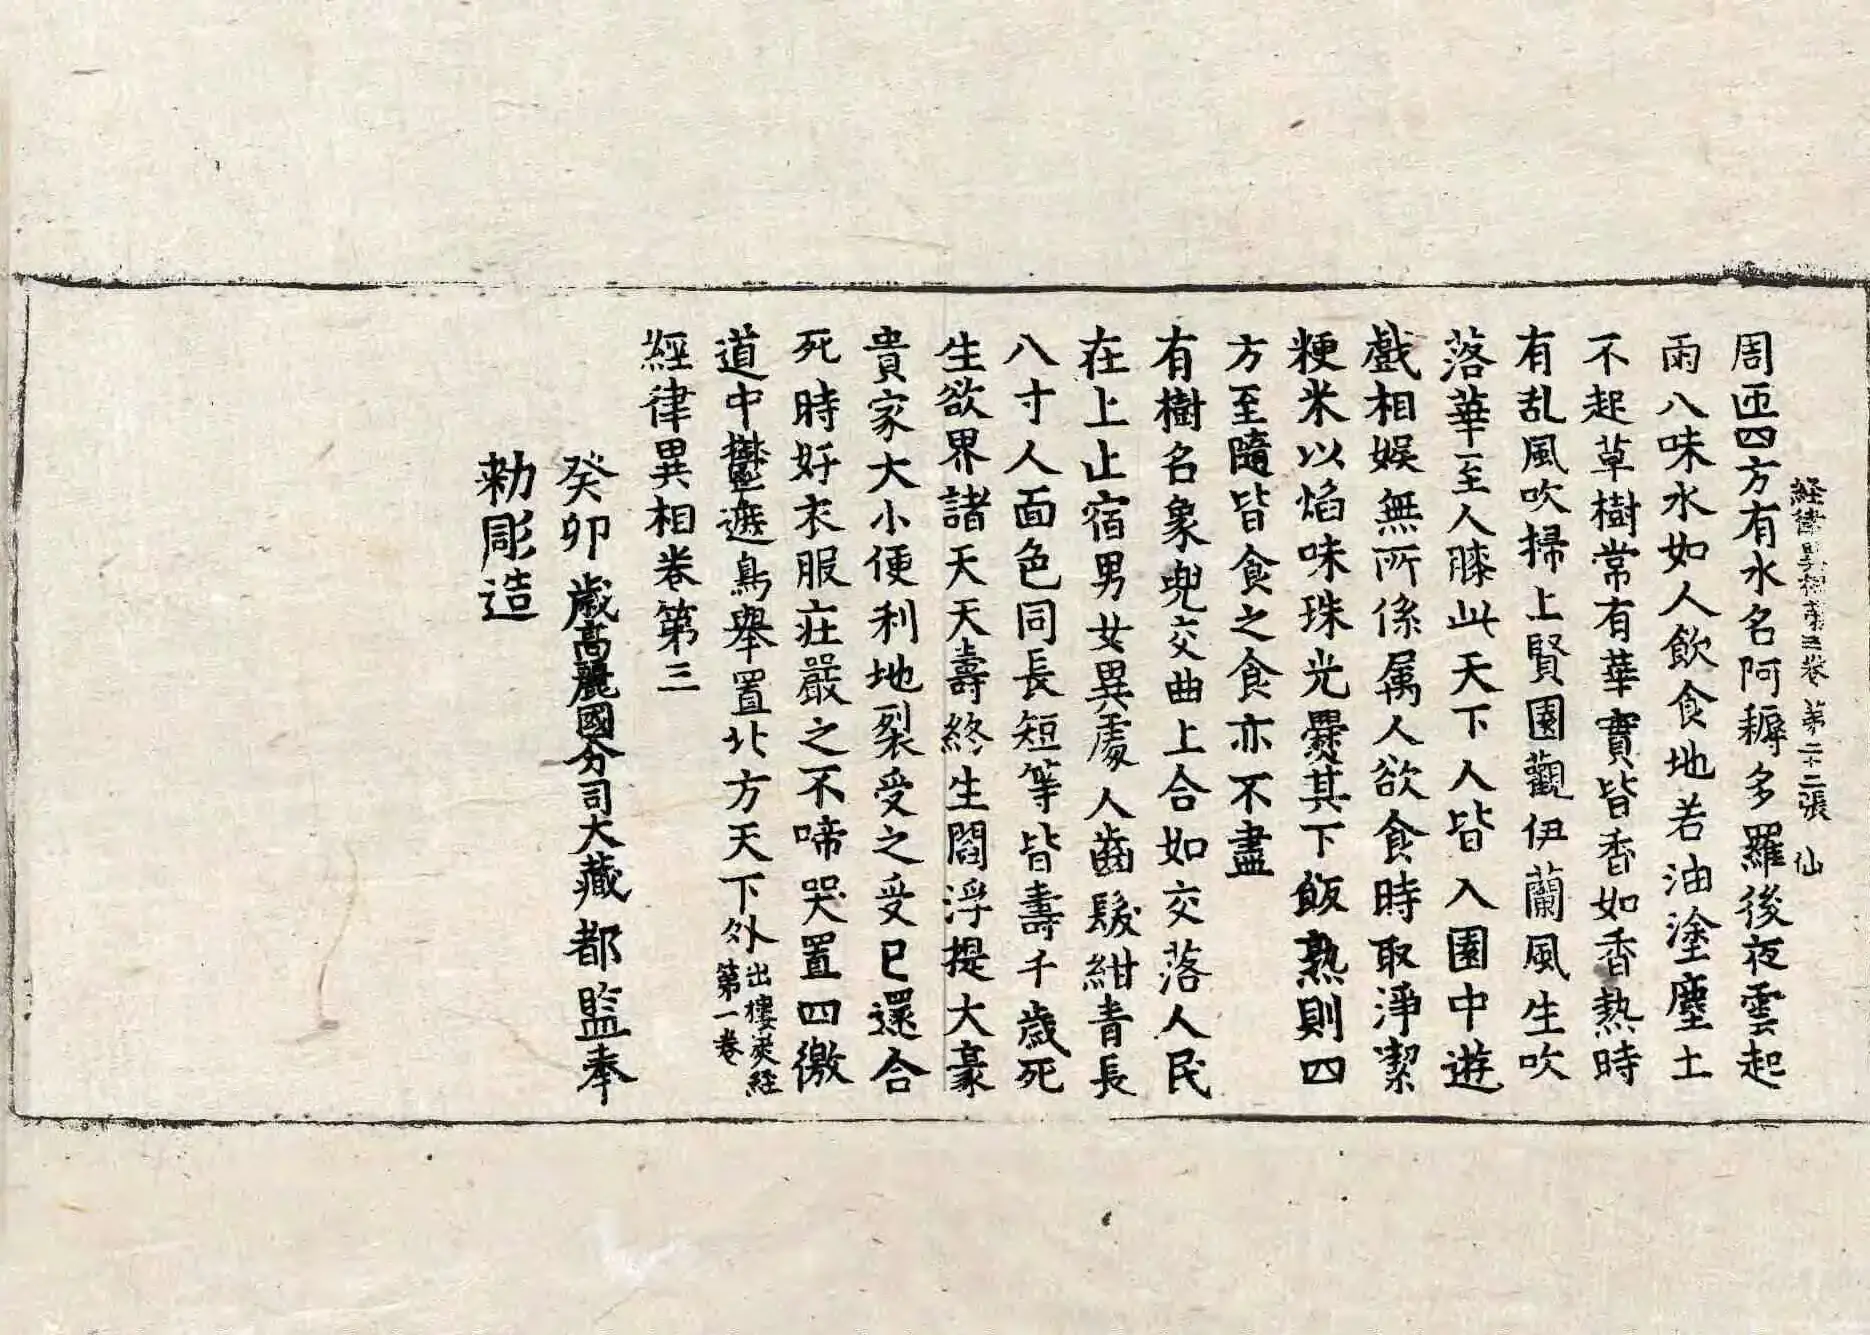 經律異相第三卷 第二十二張 仙
周匝四方有水名阿耨多羅後夜雲起
雨八味水如人飲食地若油塗塵土
不起草樹常有華實皆香如香熱時
有乱風吹掃上賢園觀伊蘭風生吹
落華至人膝此天下人皆入園中遊
戲相娛無所係属人欲食時取淨潔
粳米以焰味珠光㸑其下飯熟則四
方至隨皆食之食亦不盡
有樹名象兜交曲上合如交落人民
在上止宿男女異處人齒髮紺青長
八寸人面色同長短等皆壽千歲死
生欲界諸天天壽終生閻浮提大豪
貴家大小便利地裂受之受已還合
死時好衣服庄嚴之不啼哭置四徼
道中鬱遮鳥舉置北方天下外出樓炭經第一卷
經律異相卷第三
癸卯歲高麗國分司大藏都監奉
勑彫造